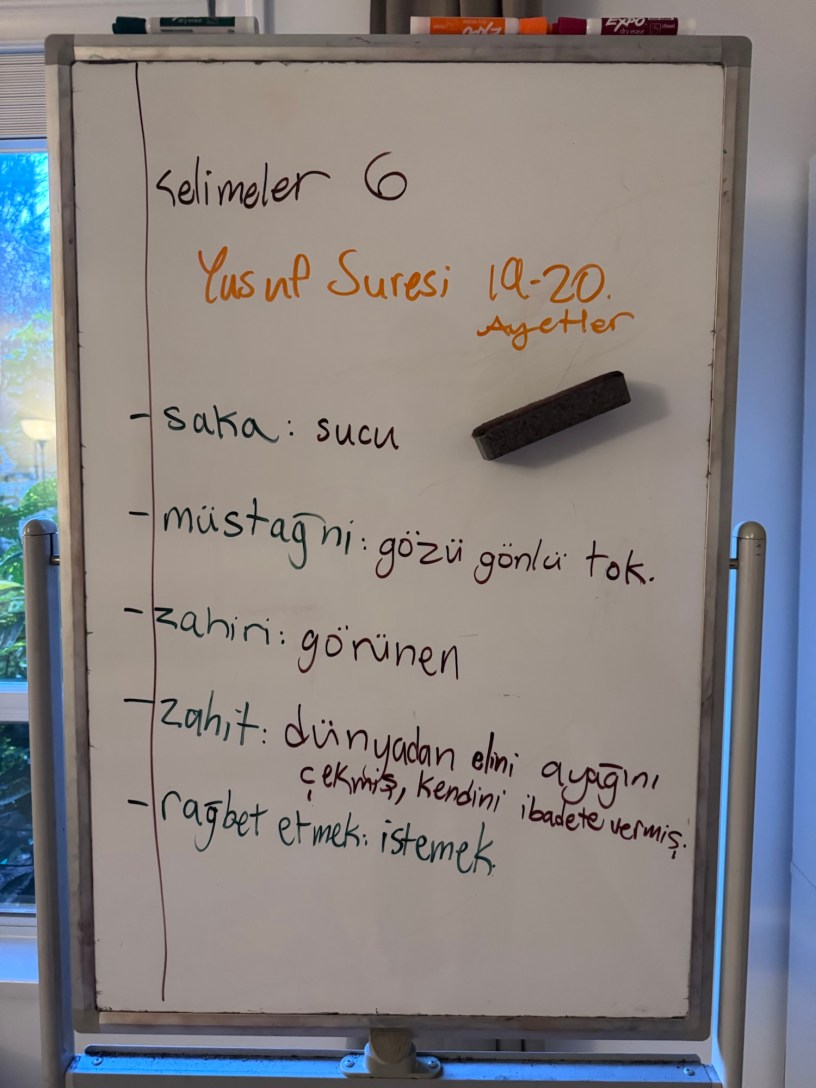 EXPO
Kelimeler 6
Yusuf Suresi 19-20.
Ayetler
- saka: sucu
- müstağni: gözü gönlü tok.
- zahiri: görünen
- zahit: dünyadan elini ayağını
çekmiş, kendini ibadete vermiş.
- rağbet etmek: istemek.